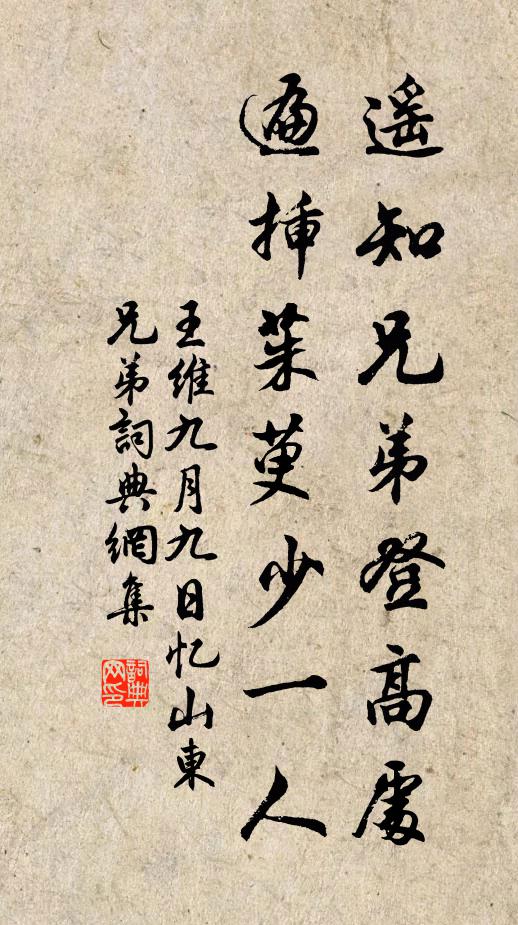 遥知兄弟登高處
遍插茱萸少一人
王維九月九日忆山東
兄弟詞典網集
詞典网印